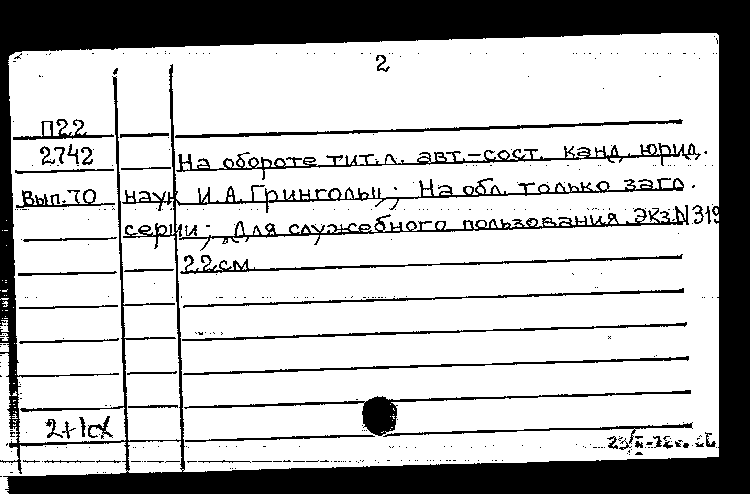 2
П22
2742 На обороте тит.л. авт.-сост. канд. юрид.
Вып.70 наук И.А.Гринголыц; На обл. только загл.
серии; „Для служебного пользования. Экз.N319
22см
2+1сх